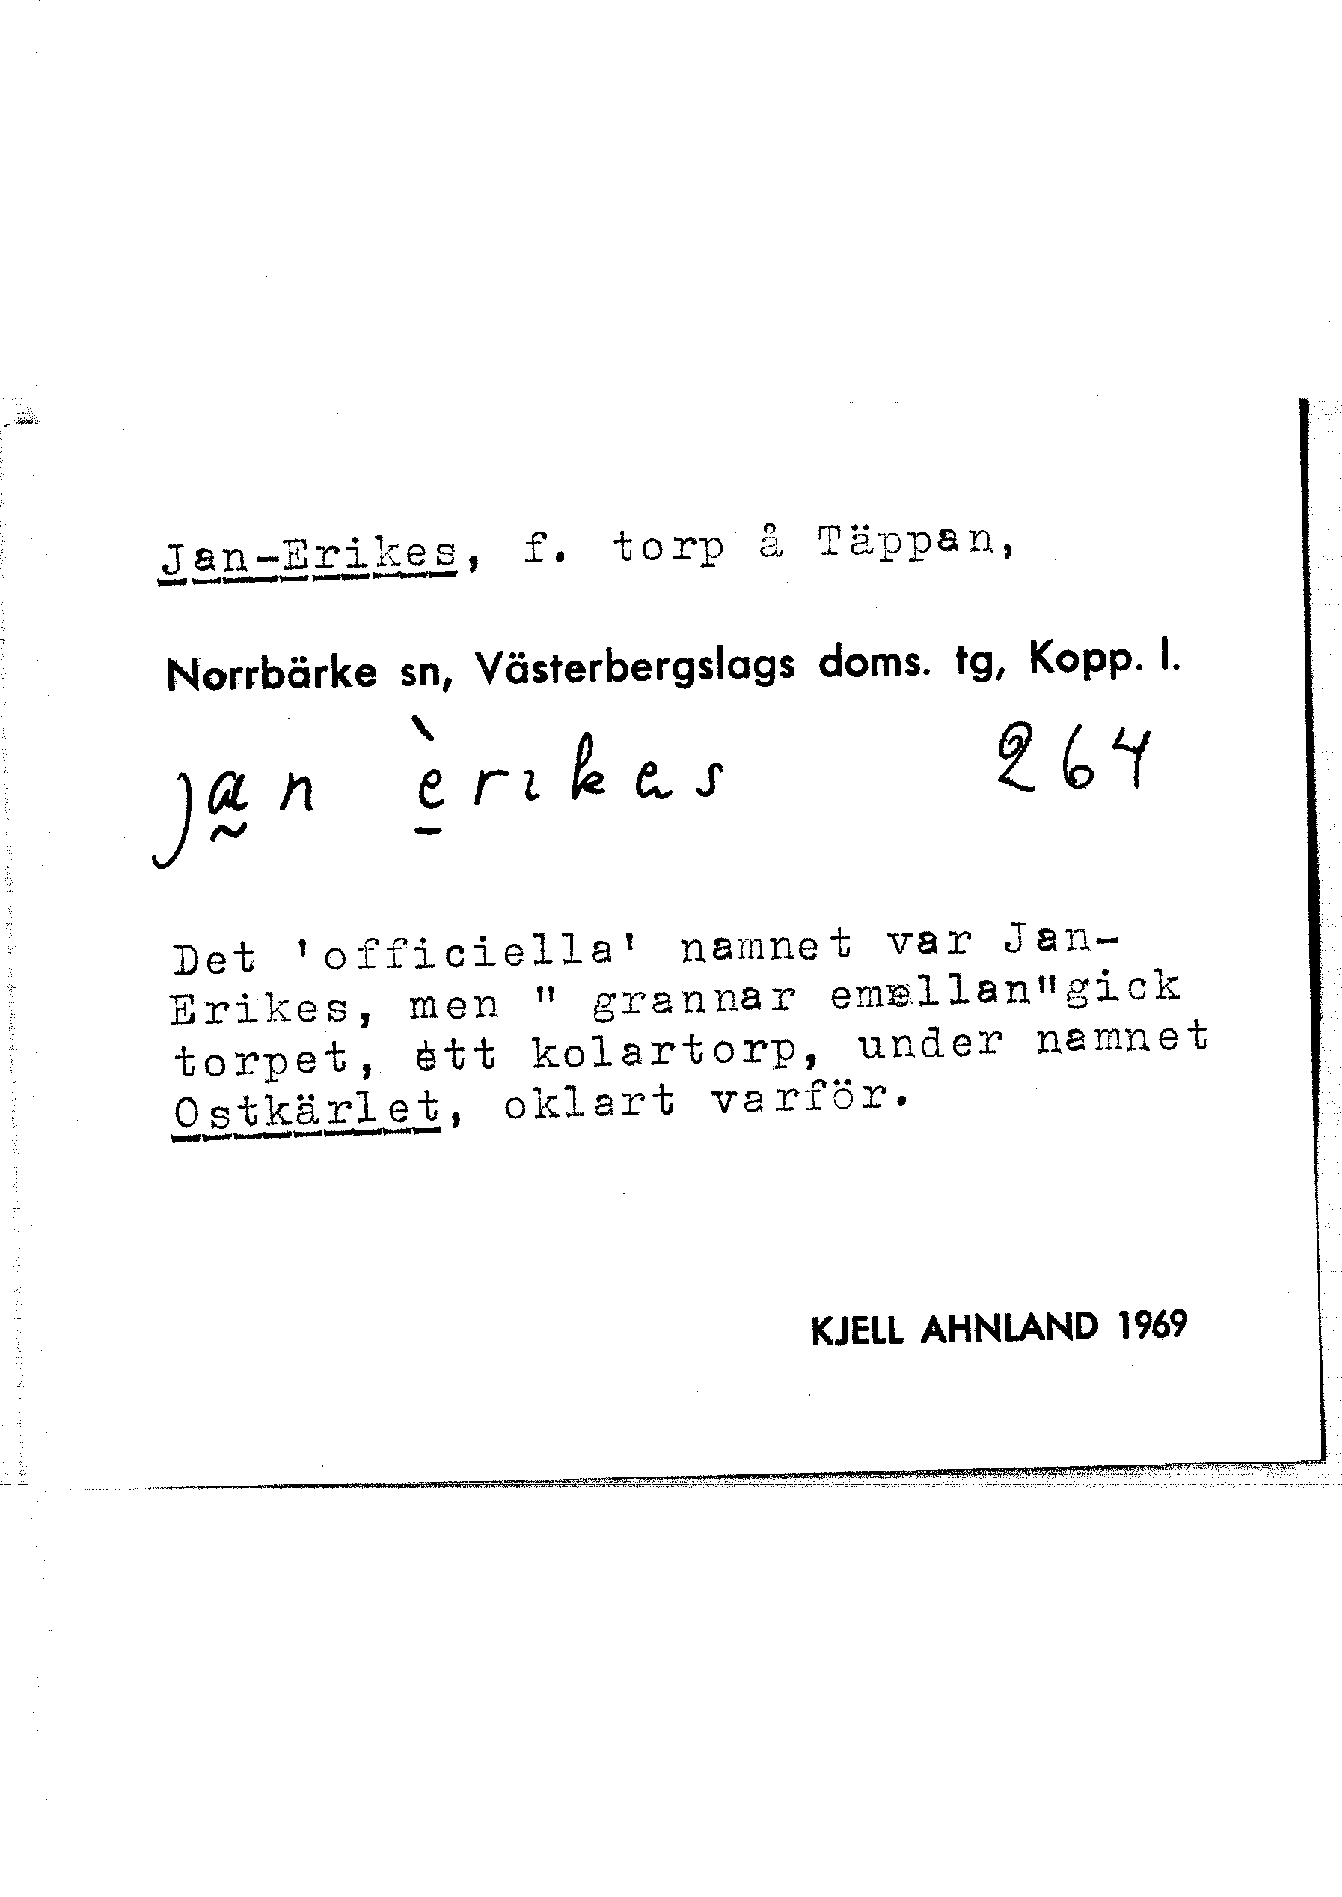 Jan-Erikes, f. torp å Täppan,
Norrbärke sn, Västerbergslags doms. tg, Kopp. l.
ja̰n è̱rıkes 264
Det 'officiella' namnet var Jan-
Erikes, men " grannar emellan"gick
torpet, ett kolartorp, under namnet
Ostkärlet, oklart varför.
KJELL AHNLAND 1969